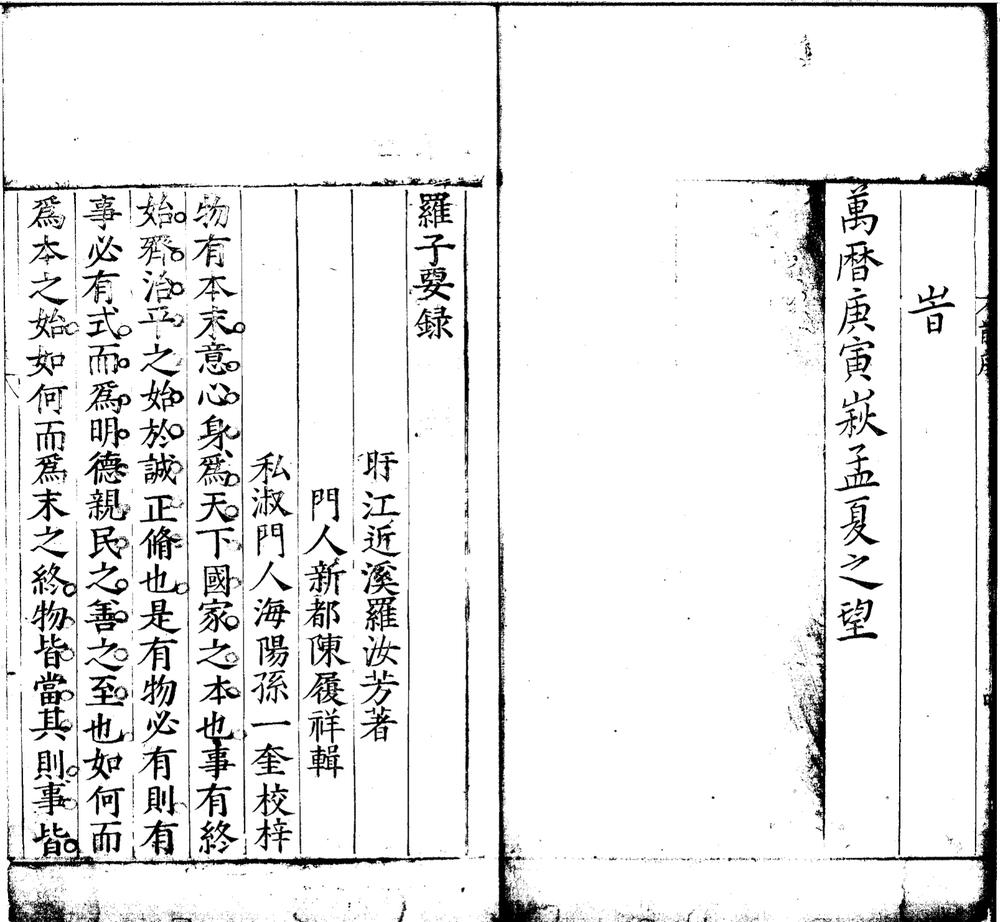 旹
萬曆庚寅嶔孟夏之望
羅子要録
盱江近溪羅汝芳著
門人新都陳履祥輯
私淑門人海陽孫一奎校梓
物有本末意心身為天下國家之本也事有終
始齊治平之始於誠正脩也是有物必有則有
事必有式而為明德親民之善之至也如何而
為本之始如何而為末之終物皆當其則事皆